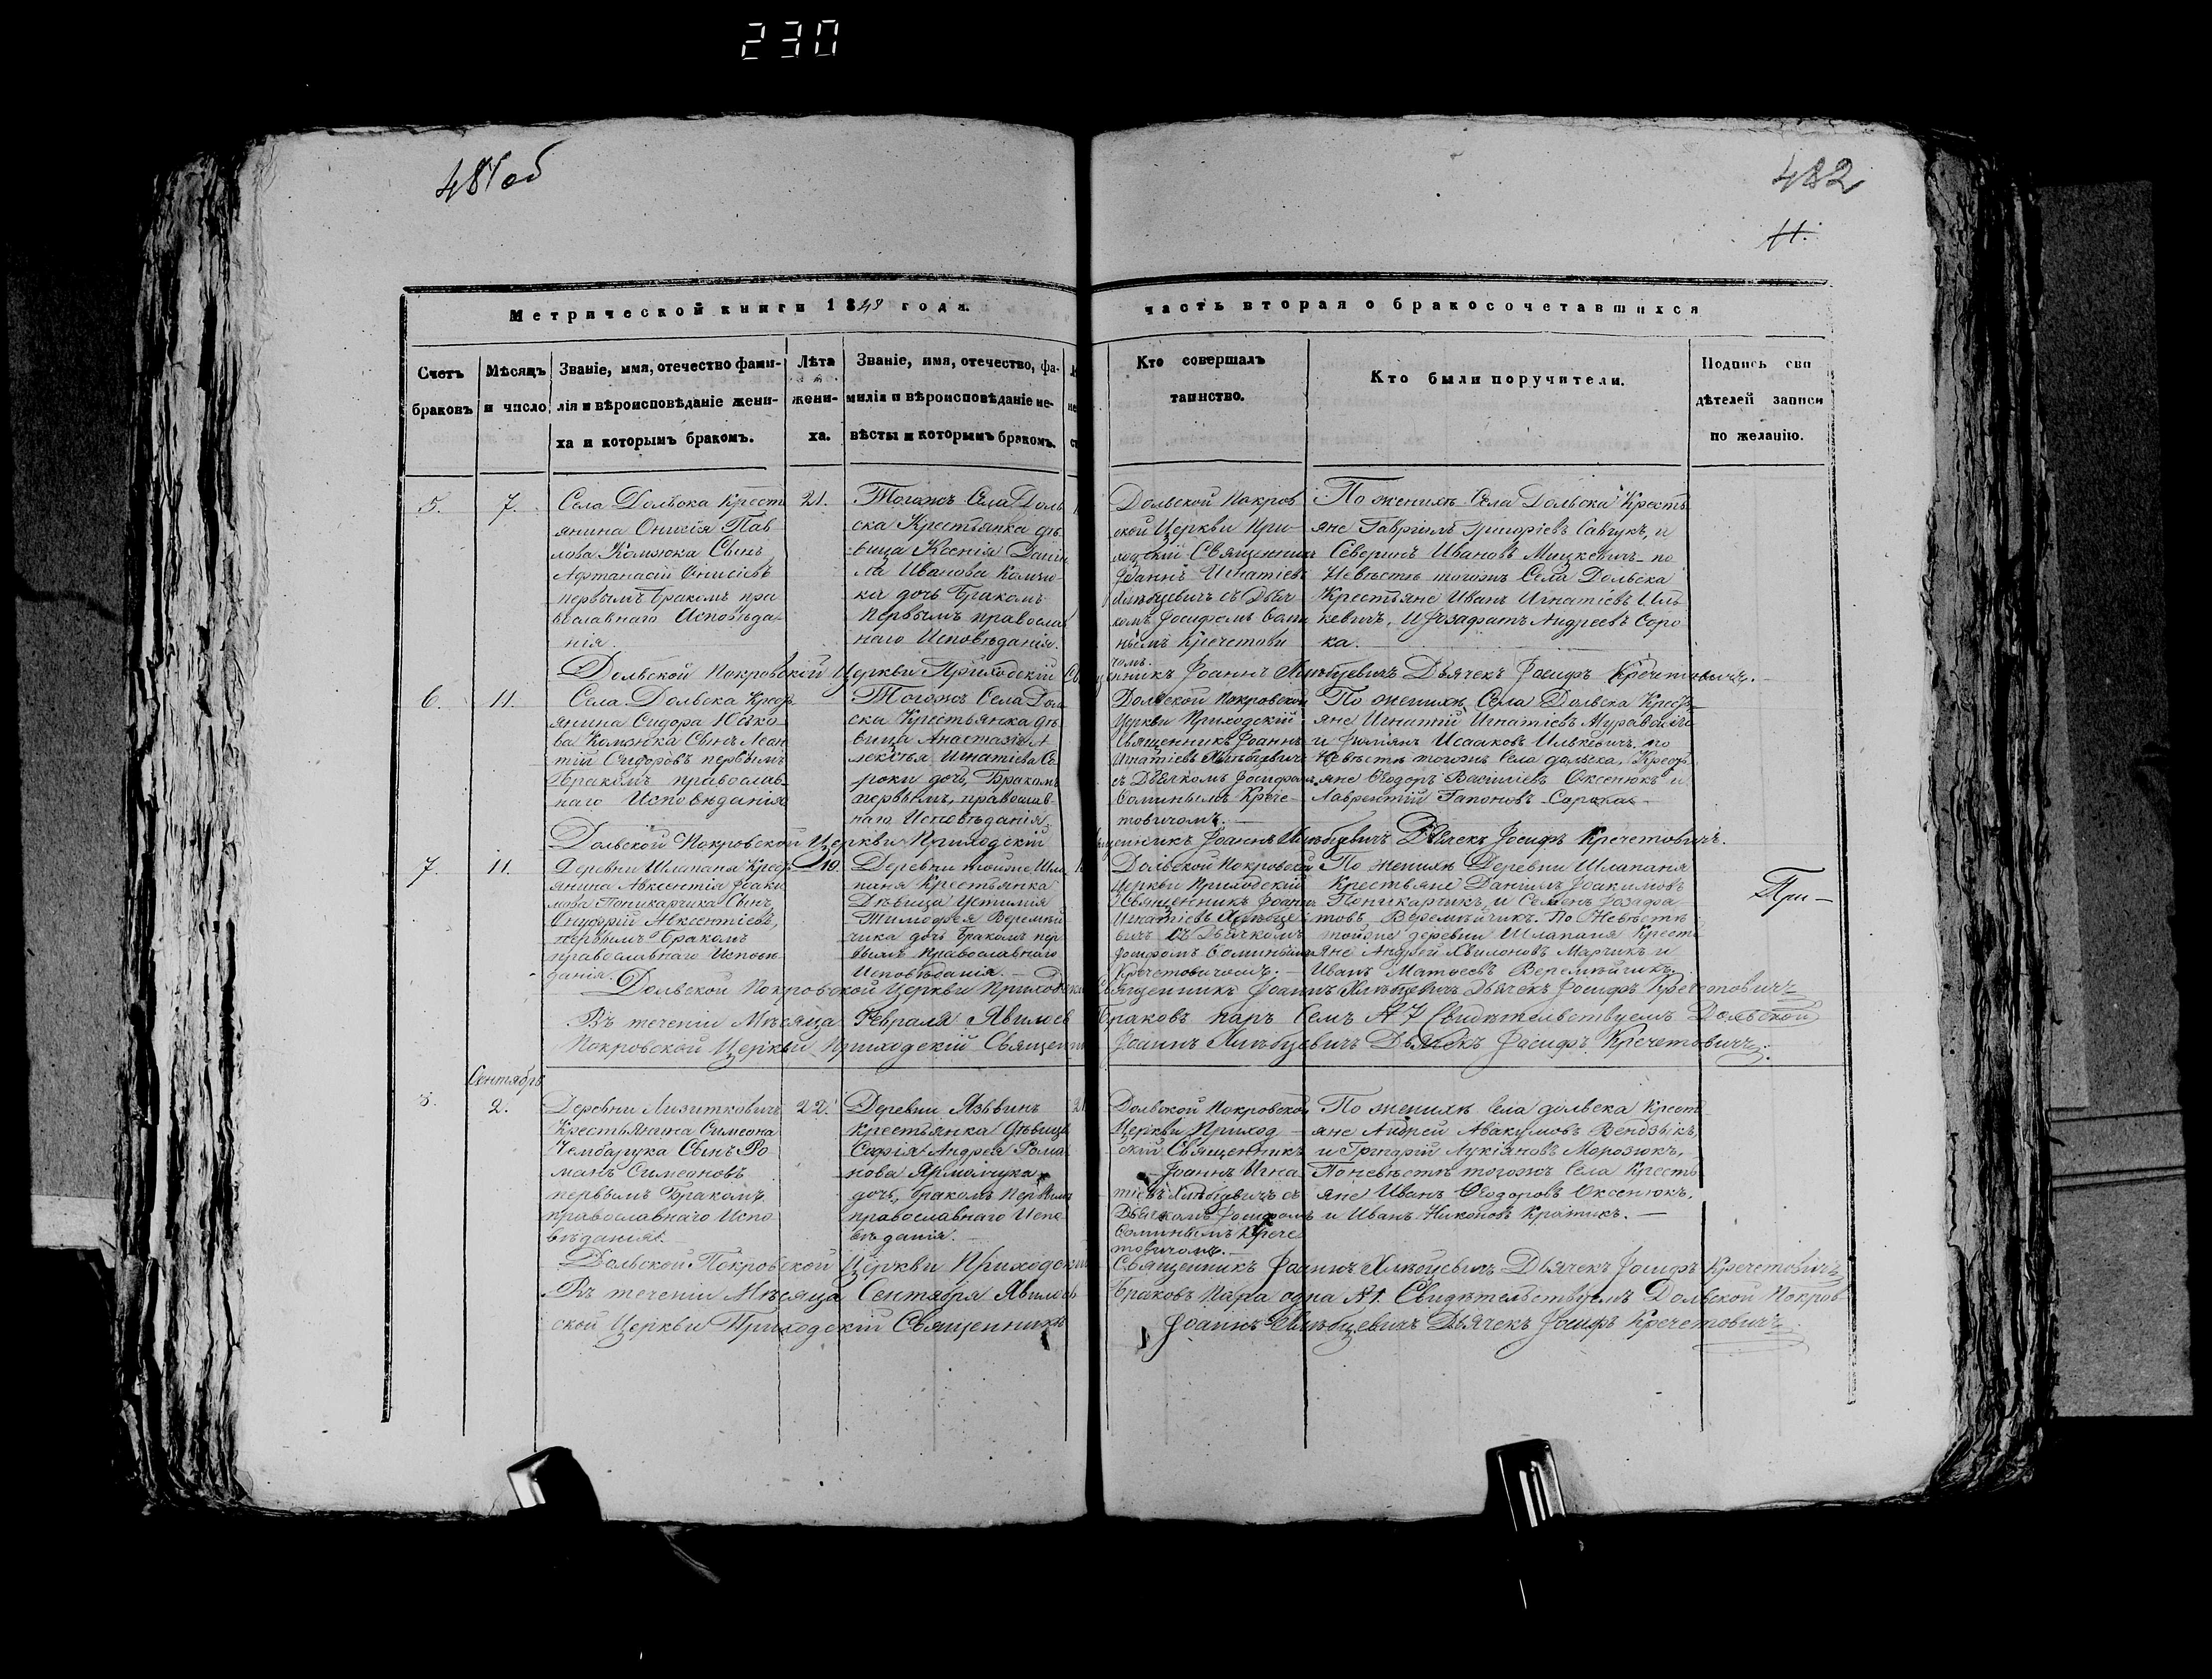 230
481 об
482
11.
Метрической книги 1848 года.
часть вторая о бракосочетавшихся
Счетъ браковъ
Мѣсяцъ и число
Званіе, имя, отечество фами-
лія и вѣроисповѣданіе жени-
ха и которымъ бракомъ.
Лѣта
жени-
ха.
Званіе, имя, отечество, фа-
милія и вѣроисповѣданіе не-
вѣсты и которымъ бракомъ.
Кто совершалъ
таинство.
Кто были поручители.
Подпись сви
дѣтелей записи
по желанію.
5.
7.
Села Дольска Крест
янина Онисія Пав
лова Комзюка Сынъ
Афтанасій Онисіевъ
первымъ бракомъ пра
вославнаго Исповѣда
нія.
21.
Тогожъ Села Доль
ска Крестьянка дѣ
вица Ксенія Дани
ла Иванова
ка дочь бракомъ
первымъ православ
наго Исповѣданія.
Дольской Покров
ской Церкви При-
ходскій Священник
Іоаннъ Игнатіевъ
Хлѣбцевичъ съ Дьяч
комъ Іосифомъ Ѳоми
нымъ Кречетови
чомъ.
По женихѣ Села Дольска Кресть
яне Гавріилъ Григоріевъ Савчукъ, и
Северинъ Ивановъ Мицкевичъ по
Невѣстѣ тогожъ Села Дольска
Крестьяне Иванъ Игнатіевъ Иль
кевичъ, И Іозафатъ Андреевъ Соро
ка.
Дольской Покровской Церкви Приходскій Священникъ Іоаннъ Хлѣбцевичъ Дьячекъ Іосифъ Кречетовичъ.
6.
11.
Села Дольска Крест
янина Сидора Юско
ва Комзюка Сынъ Леон
тій Сидоровъ первымъ
бракомъ православ
наго Исповѣданія
Тогожъ Села Дол
ска Крестьянка дѣ
вица Анастазія А
лексѣя Игнатіева Со
роки дочь, Бракомъ
первымъ, православ
наго Исповѣданія
Дольской Покровской
Церкви Приходскій
Священникъ Іоаннъ
Игнатіевъ Хлѣбцевичъ
съ Дьячкомъ Іосифомъ
Ѳоминымъ Крече-
товичомъ.
По женихѣ Села Дольска Крест
яне Игнатій Игнатіевъ
и Исааковъ Илькевичъ. по
Невѣстѣ тогожъ Села дольска, Крест
яне Ѳеодоръ Василіевъ Оксенюкъ и
Лаврентій Гапоновъ Сорока
Дольской Покровской Церкви Приходскій Священникъ Іоаннъ Хлѣбцевичъ Дьячекъ Іосифъ Кречетовичъ.
7.
11.
Деревни Шлапаня Крест
янина Авксентія Іоаки
мова Поникарчика Сынъ
Онуфрій Авксентіевъ,
первымъ бракомъ
православнаго Исповѣ
данія.
19.
Деревни тойже Шла
паня Крестьянка
Дѣвица Устимія
Тимофея Веремѣй
чика дочь бракомъ пер
вымъ православнаго
Исповѣданія.
Дольской Покровской
Церкви Приходскій
Священникъ Іоаннъ
Игнатіевъ Хлѣбце
вичъ съ Дьячкомъ
Іосифомъ Ѳоминымъ
Кречетовичомъ.
По женихѣ Деревни Шлапаня
Крестьяне Даніилъ Іоакимовъ
Поникарчикъ, и Семенъ Іозафа
товъ Веремѣйчикъ. По Невѣстѣ
тойже деревни Шлапаня Крест
яне Андрей Марчикъ и
Иванъ Матвеевъ Веремѣйчикъ.
При-
Дольской Покровской Церкви Приходскій Священникъ Іоаннъ Хлѣбцевичъ Дьячекъ Іосифъ Кречетовичъ
Въ теченіи Мѣсяца Февраля Явилось браковъ паръ Семъ № 7 Свидѣтельствуемъ Дольской
Покровской Церкви Приходскій Священн Іоаннъ Хлѣбцевичъ Дьячекъ Іосифъ Кречетовичъ.
Сентябрь
8.
2.
Деревни
Крестьянина Симеона
Чембарука Сынъ Ро
манъ Симеоновъ
первымъ бракомъ
православнаго Испо
вѣданія.
22.
Деревни Язвинъ
Крестьянка дѣвица
Софія Андрея Рома
нова Ярмолчука
дочь, бракомъ первымъ
православнаго Испо
вѣданія.
21
Дольской Покровской
Церкви Приход
скій Священникъ
Іоаннъ Игна
тіевъ Хлѣбцевичъ съ
Дьячкомъ Іосифомъ
Ѳоминымъ Крече
товичомъ.
По женихѣ Села дольска Крест
яне Андрей Авакумовъ Вендзыкъ,
и Григорій Лукіяновъ Морозюкъ,
По невѣстѣ тогожъ Села Кресть
яне Иванъ Ѳеодоровъ Оксенюкъ,
и Иванъ Никоновъ Кротикъ.
Дольской Покровской Церкви Приходскій Священникъ Іоаннъ Хлѣбцевичъ Дьячекъ Іосифъ Кречетовичъ
Въ теченіи Мѣсяца Сентября Явилось браковъ пара одна № 1. Свидѣтельствуемъ Дольской Покров
ской Церкви Приходскій Священникъ Іоаннъ Хлѣбцевичъ Дьячекъ Іосифъ Кречетовичъ